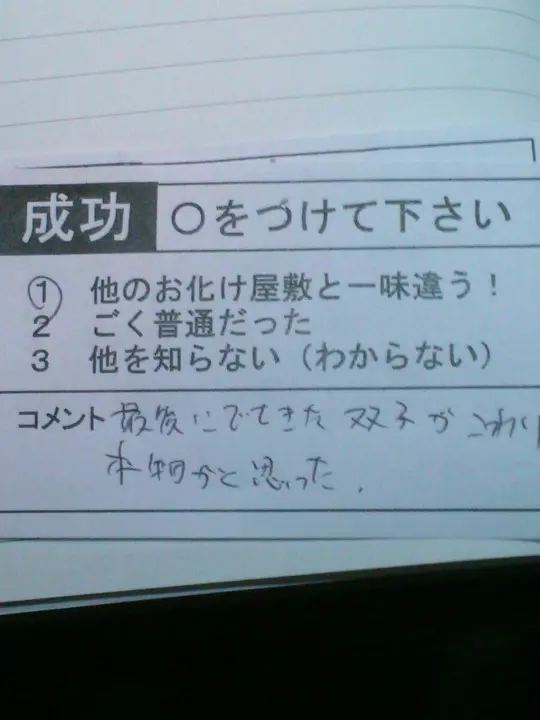 成功 〇をづけて下さい
1 他のお化け屋敷と一味違う！
2 ごく普通だった
3 他を知らない（わからない）
コメント 最後にでてきた 双子が こわく
本物かと思った.